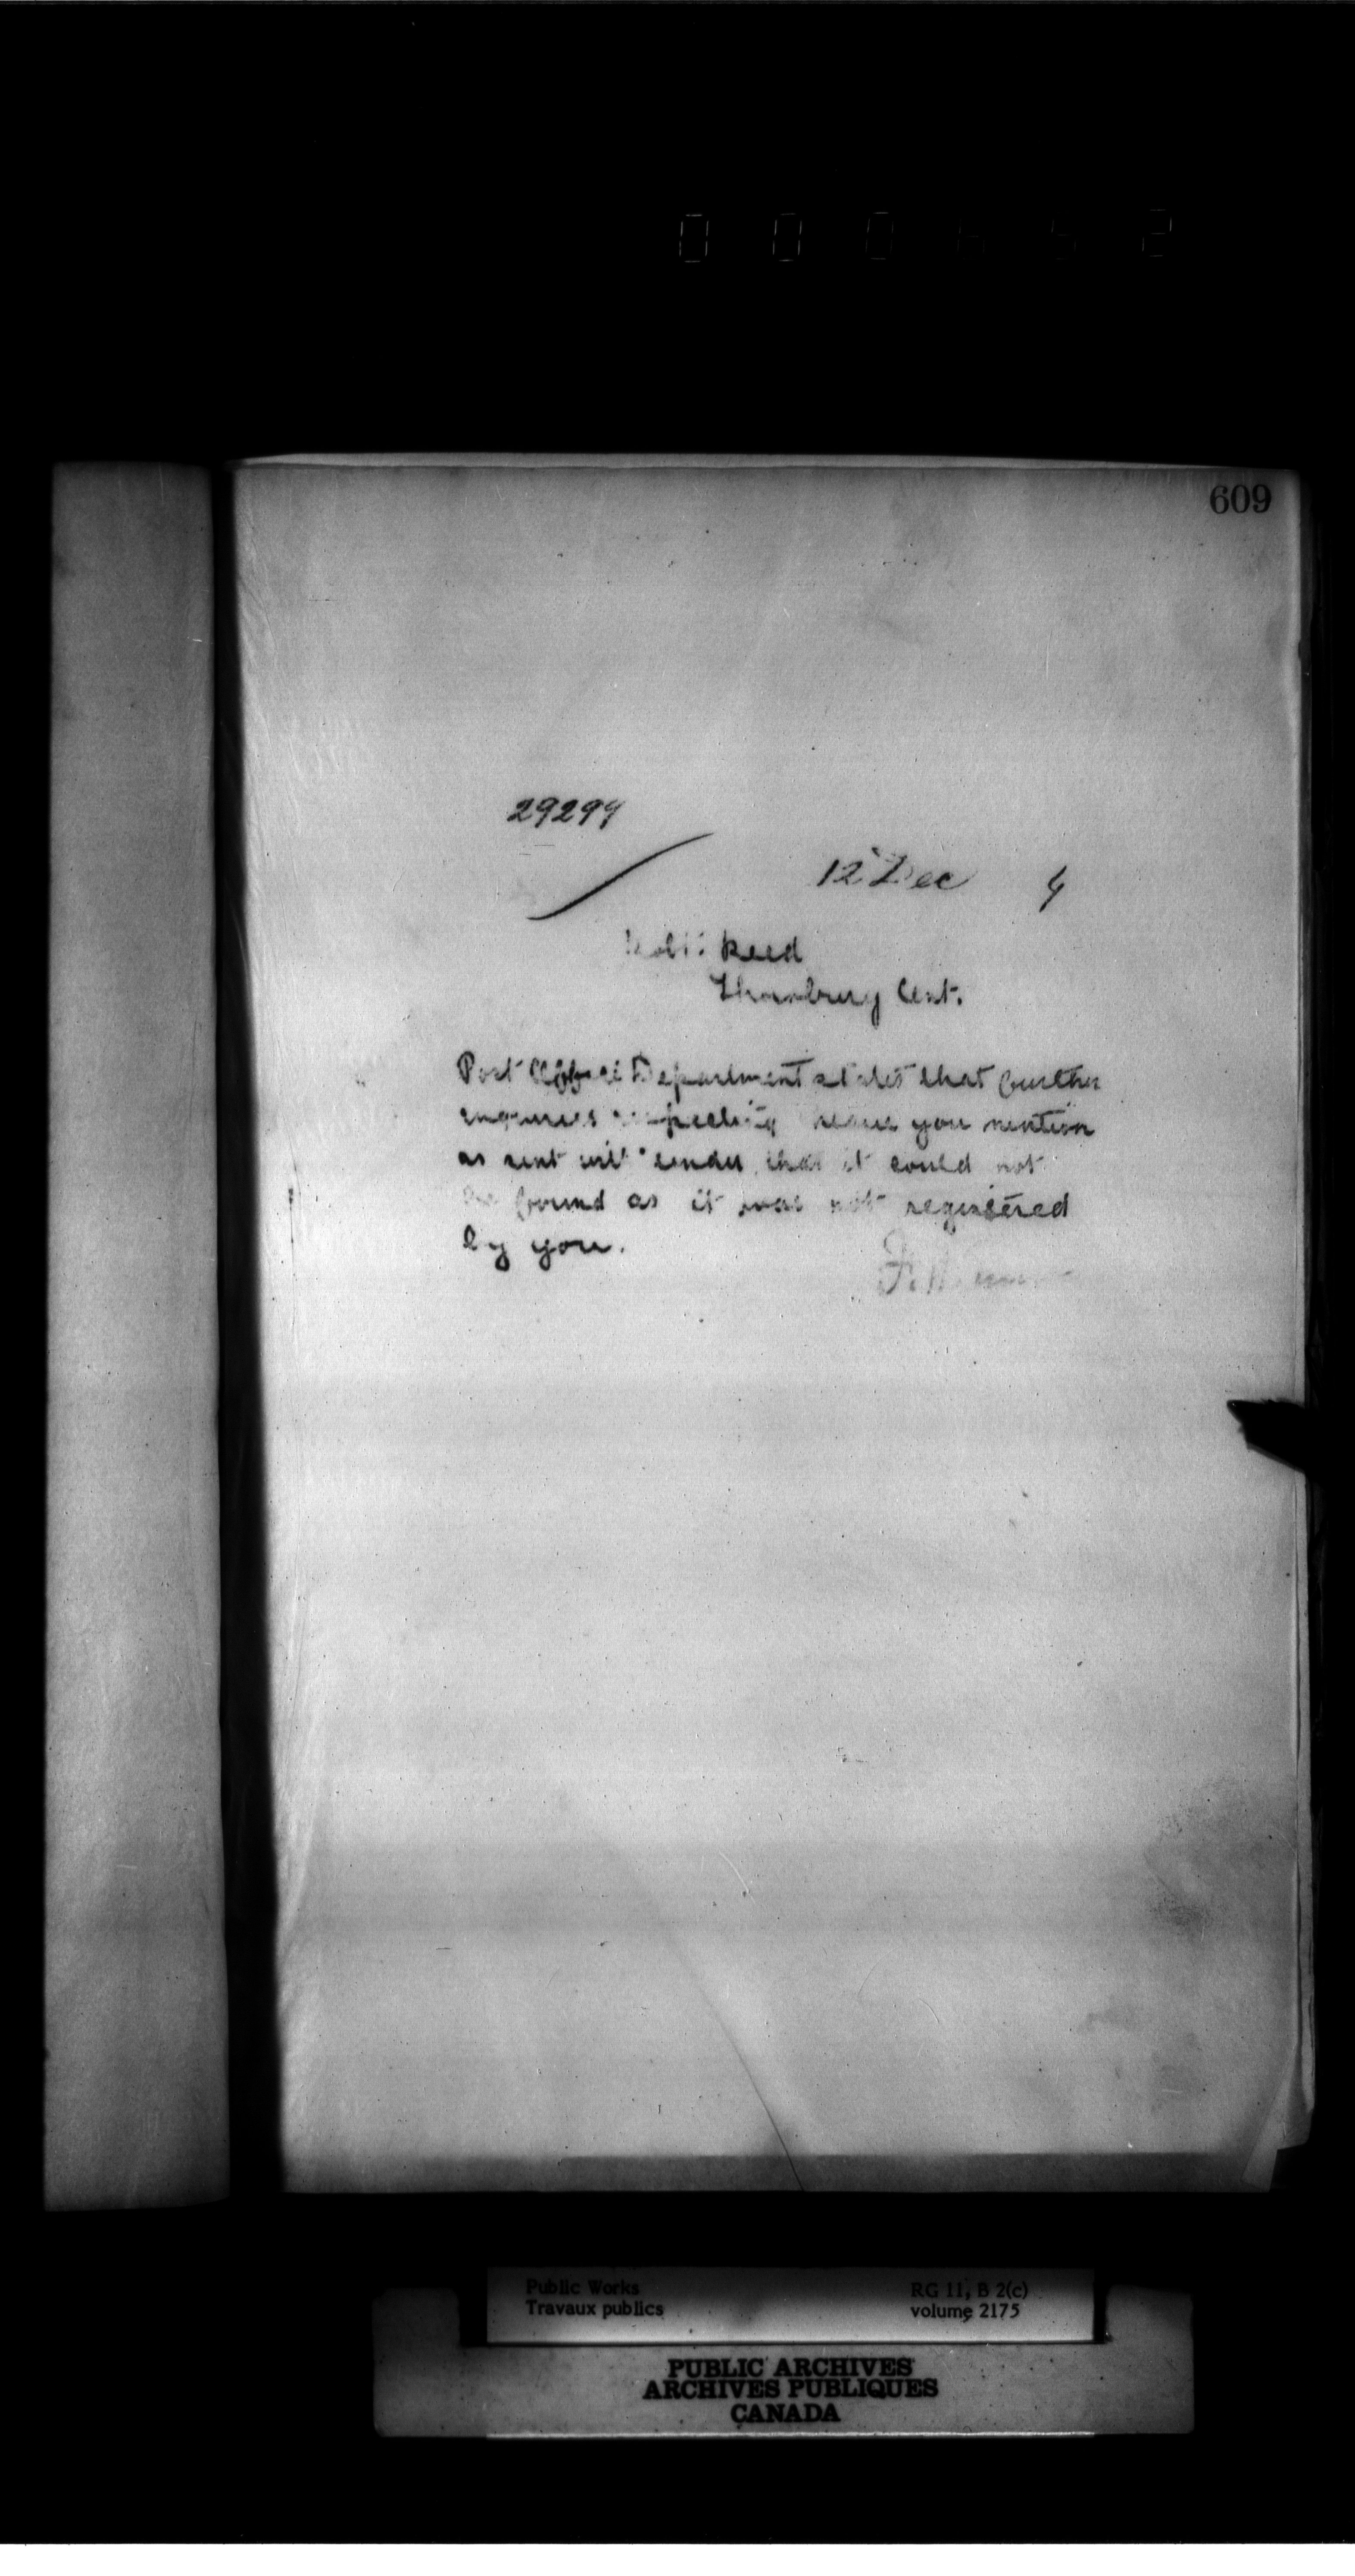 609
29299
12 Dec 4
Robt: Reed
Thornbury Ont.
Post Office Department states that further
enquiries respecting you mention
as sent with tender, that it could not
be found as it was not registered
by you.
Public Works
Travaux publics
RG 11, B 2(c)
volume 2175
PUBLIC ARCHIVES
ARCHIVES PUBLIQUES
CANADA